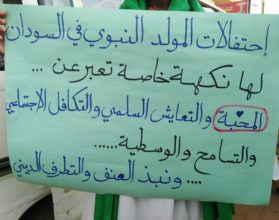 إحتفالات المولد النبوي في السودان
لها نكهة خاصة تعبر عن ...
المحبة والتعايش السلمي والتكافل الإجتماعي
والتسامح والوسطية......
.... ونبذ العنف والتطرف الديني